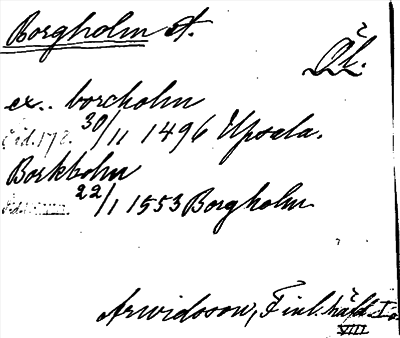 Borgholm st.
Ök.
ex. borcholm
30/11 1496 Upsala.
Borkholm
22/1 1553 Borgholm
Arwidsson, Finl. häfd. I
VIII